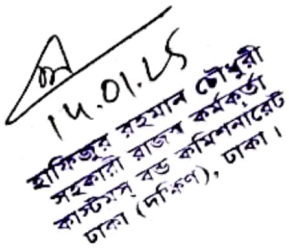 14.01.25
হাফিজুর রহমান চৌধুরী
সহকারী রাজস্ব কর্মকর্তা
কাস্টমস্ বন্ড কমিশনারেট
ঢাকা (দক্ষিণ), ঢাকা।